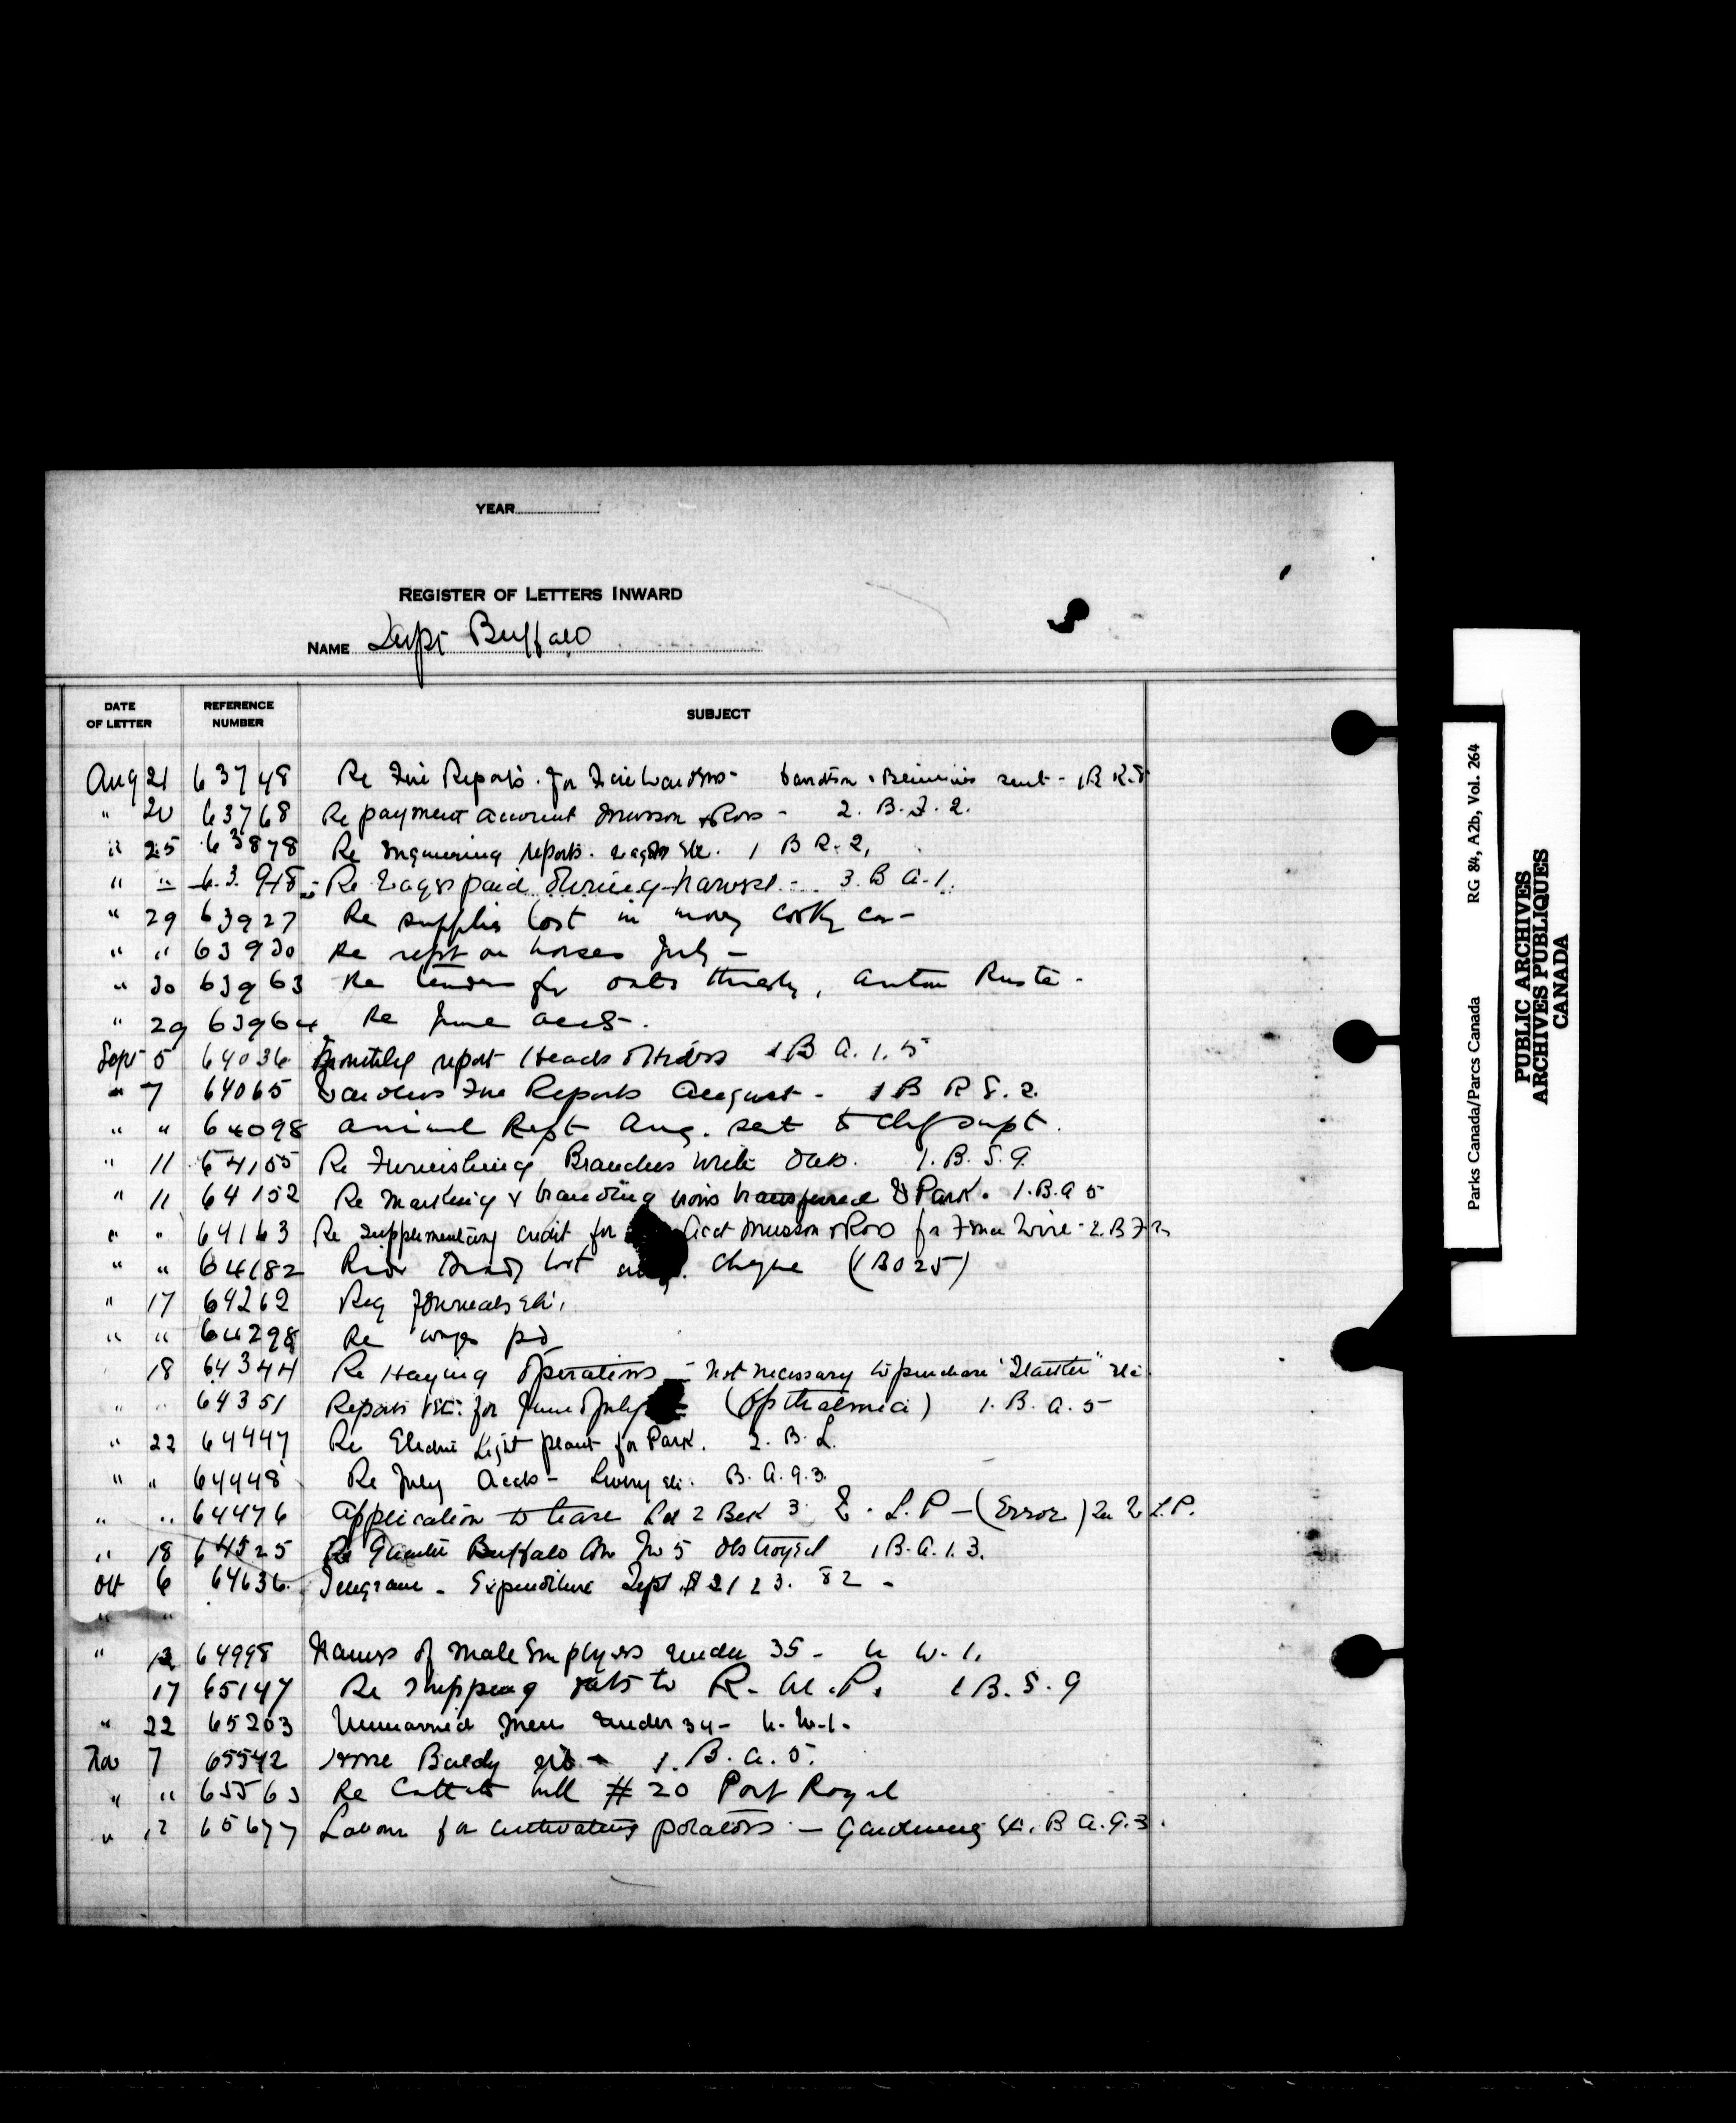 YEAR
REGISTER OF LETTERS INWARD
NAME Supt Buffalo
DATE OF LETTER
REFERENCE NUMBER
SUBJECT
Aug 21 63748 Re Fire Reports for Fire Wardens - sent - 1 B R.8
" 20 63768 Re payment account Musson & Ross - 2. B. F. 2.
" 25 63878 Re Engineering reports. 1 B R. 2,
" " 63948 - Re Wages paid during harvest - 3. B A. 1.
" 29 63927 Re supplies lost in
" " 63930 Re rept on horses July -
" 30 63963 Re tenders for oats , Anton
" 29 63964 Re June accts.
Sept 5 64036 Monthly report 1 B A. 1. 5
" 7 64065 Wardens Fire Reports August - 1 B R 8. 2.
" " 64098 Animal Rept Aug. sent to Chf Supt.
" 11 64105 Re Furnishing Branches White Oak. 1. B. S. 9.
" 11 64152 Re Marking & branding irons transferred to Park. 1. B. A 5
" " 64163 Re Supplementary credit for Acct Musson & Ross for Fence Wire - 2. B F 2
" " 64182 lost cheque (1 B O 25)
" 17 64262 Req Journals etc.
" " 64298 Re wages pd
18 64344 Re Haying Operations - not necessary to purchase etc.
" " 64351 Reports Vet. for June & July (Opthalmia) 1. B. A. 5
" 22 64447 Re Electric Light plant for Park. 2. B. L.
" " 64448 Re July Accts - B. A. 9. 3.
" " 64476 Application to lease Lot 2 Blk 3 E. L. P - (Error) L. P.
" 18 64525 Re Buffalo Cow No 5 destroyed 1 B. A. 1. 3.
Oct 6 64636 Telegram - Expenditure Sept $2123. 82 -
" "
" 12 64998 Names of Male Employees under 35 - W. 1.
17 65147 Re Shipping oats to R. M. P. 1 B. S. 9
" 22 65203 Unmarried Men under 34 -
Nov 7 65542 Horse Baldy 1. B. A. 5.
" " 65563 Re Cattalo bull # 20 Port Royal
" 12 65677 Labour for cultivating potatoes - Gardening etc. B A. 9. 3.
Parks Canada/Parcs Canada RG 84, A2b, Vol. 264
PUBLIC ARCHIVES
ARCHIVES PUBLIQUES
CANADA